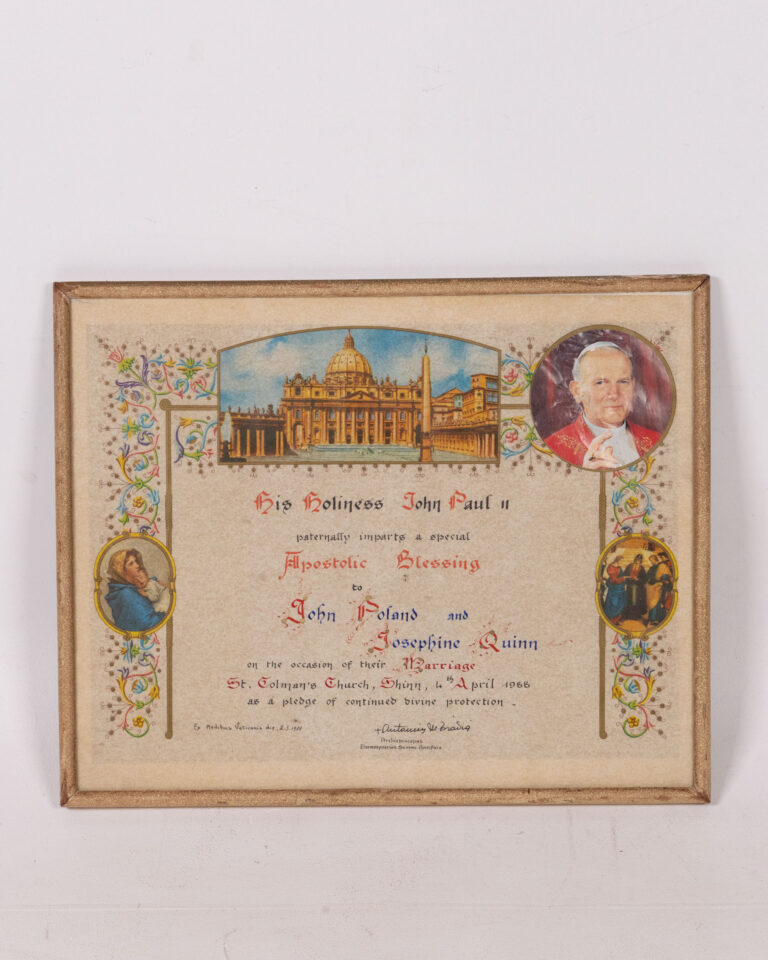 His Holiness John Paul II
paternally imparts a special
Apostolic Blessing
to
John Poland and
Josephine Quinn
on the occasion of their Marriage
St. Colman's Church, Shinn, 4th April 1988
as a pledge of continued divine protection.
Ex Aedibus Vaticanis die,
Archiepiscopus